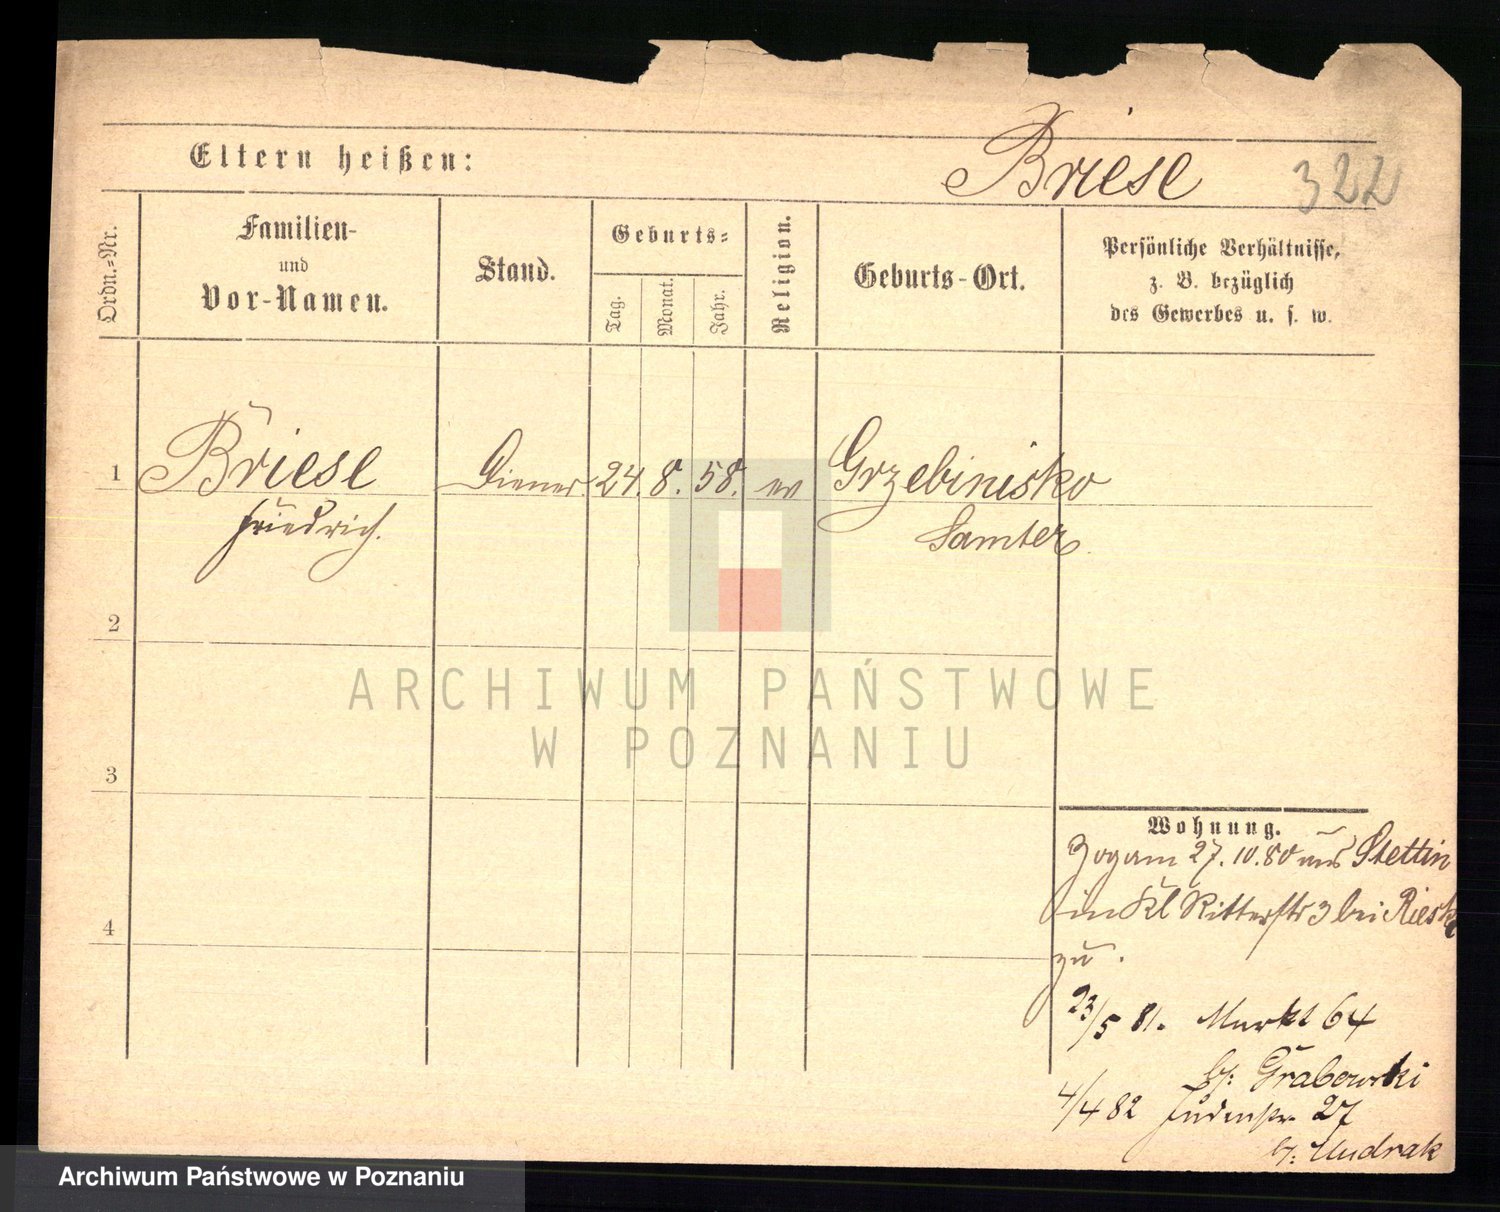 Briese 322
Eltern heißen:
Ordn.=Nr.
Familien-
und
Vor-Namen.
Stand.
Geburts=
Tag.
Monat.
Jahr.
Religion.
Geburts-Ort.
Persönliche Verhältnisse,
z. B. bezüglich
des Gewerbes u. s. w.
1 Briese Diener 24. 8. 58. ev Grzebinisko
Friedrich. Samter
2
3
4
ARCHIWUM PAŃSTWOWE
W POZNANIU
Wohnung.
Zog am 27.10.80 aus Stettin
in Kl Ritterstr 3 bei
zu.
23/5 81. Markt 64
b/: Grabowski
4/4 82 Judenstr. 27
b/: Mudrak
Archiwum Państwowe w Poznaniu